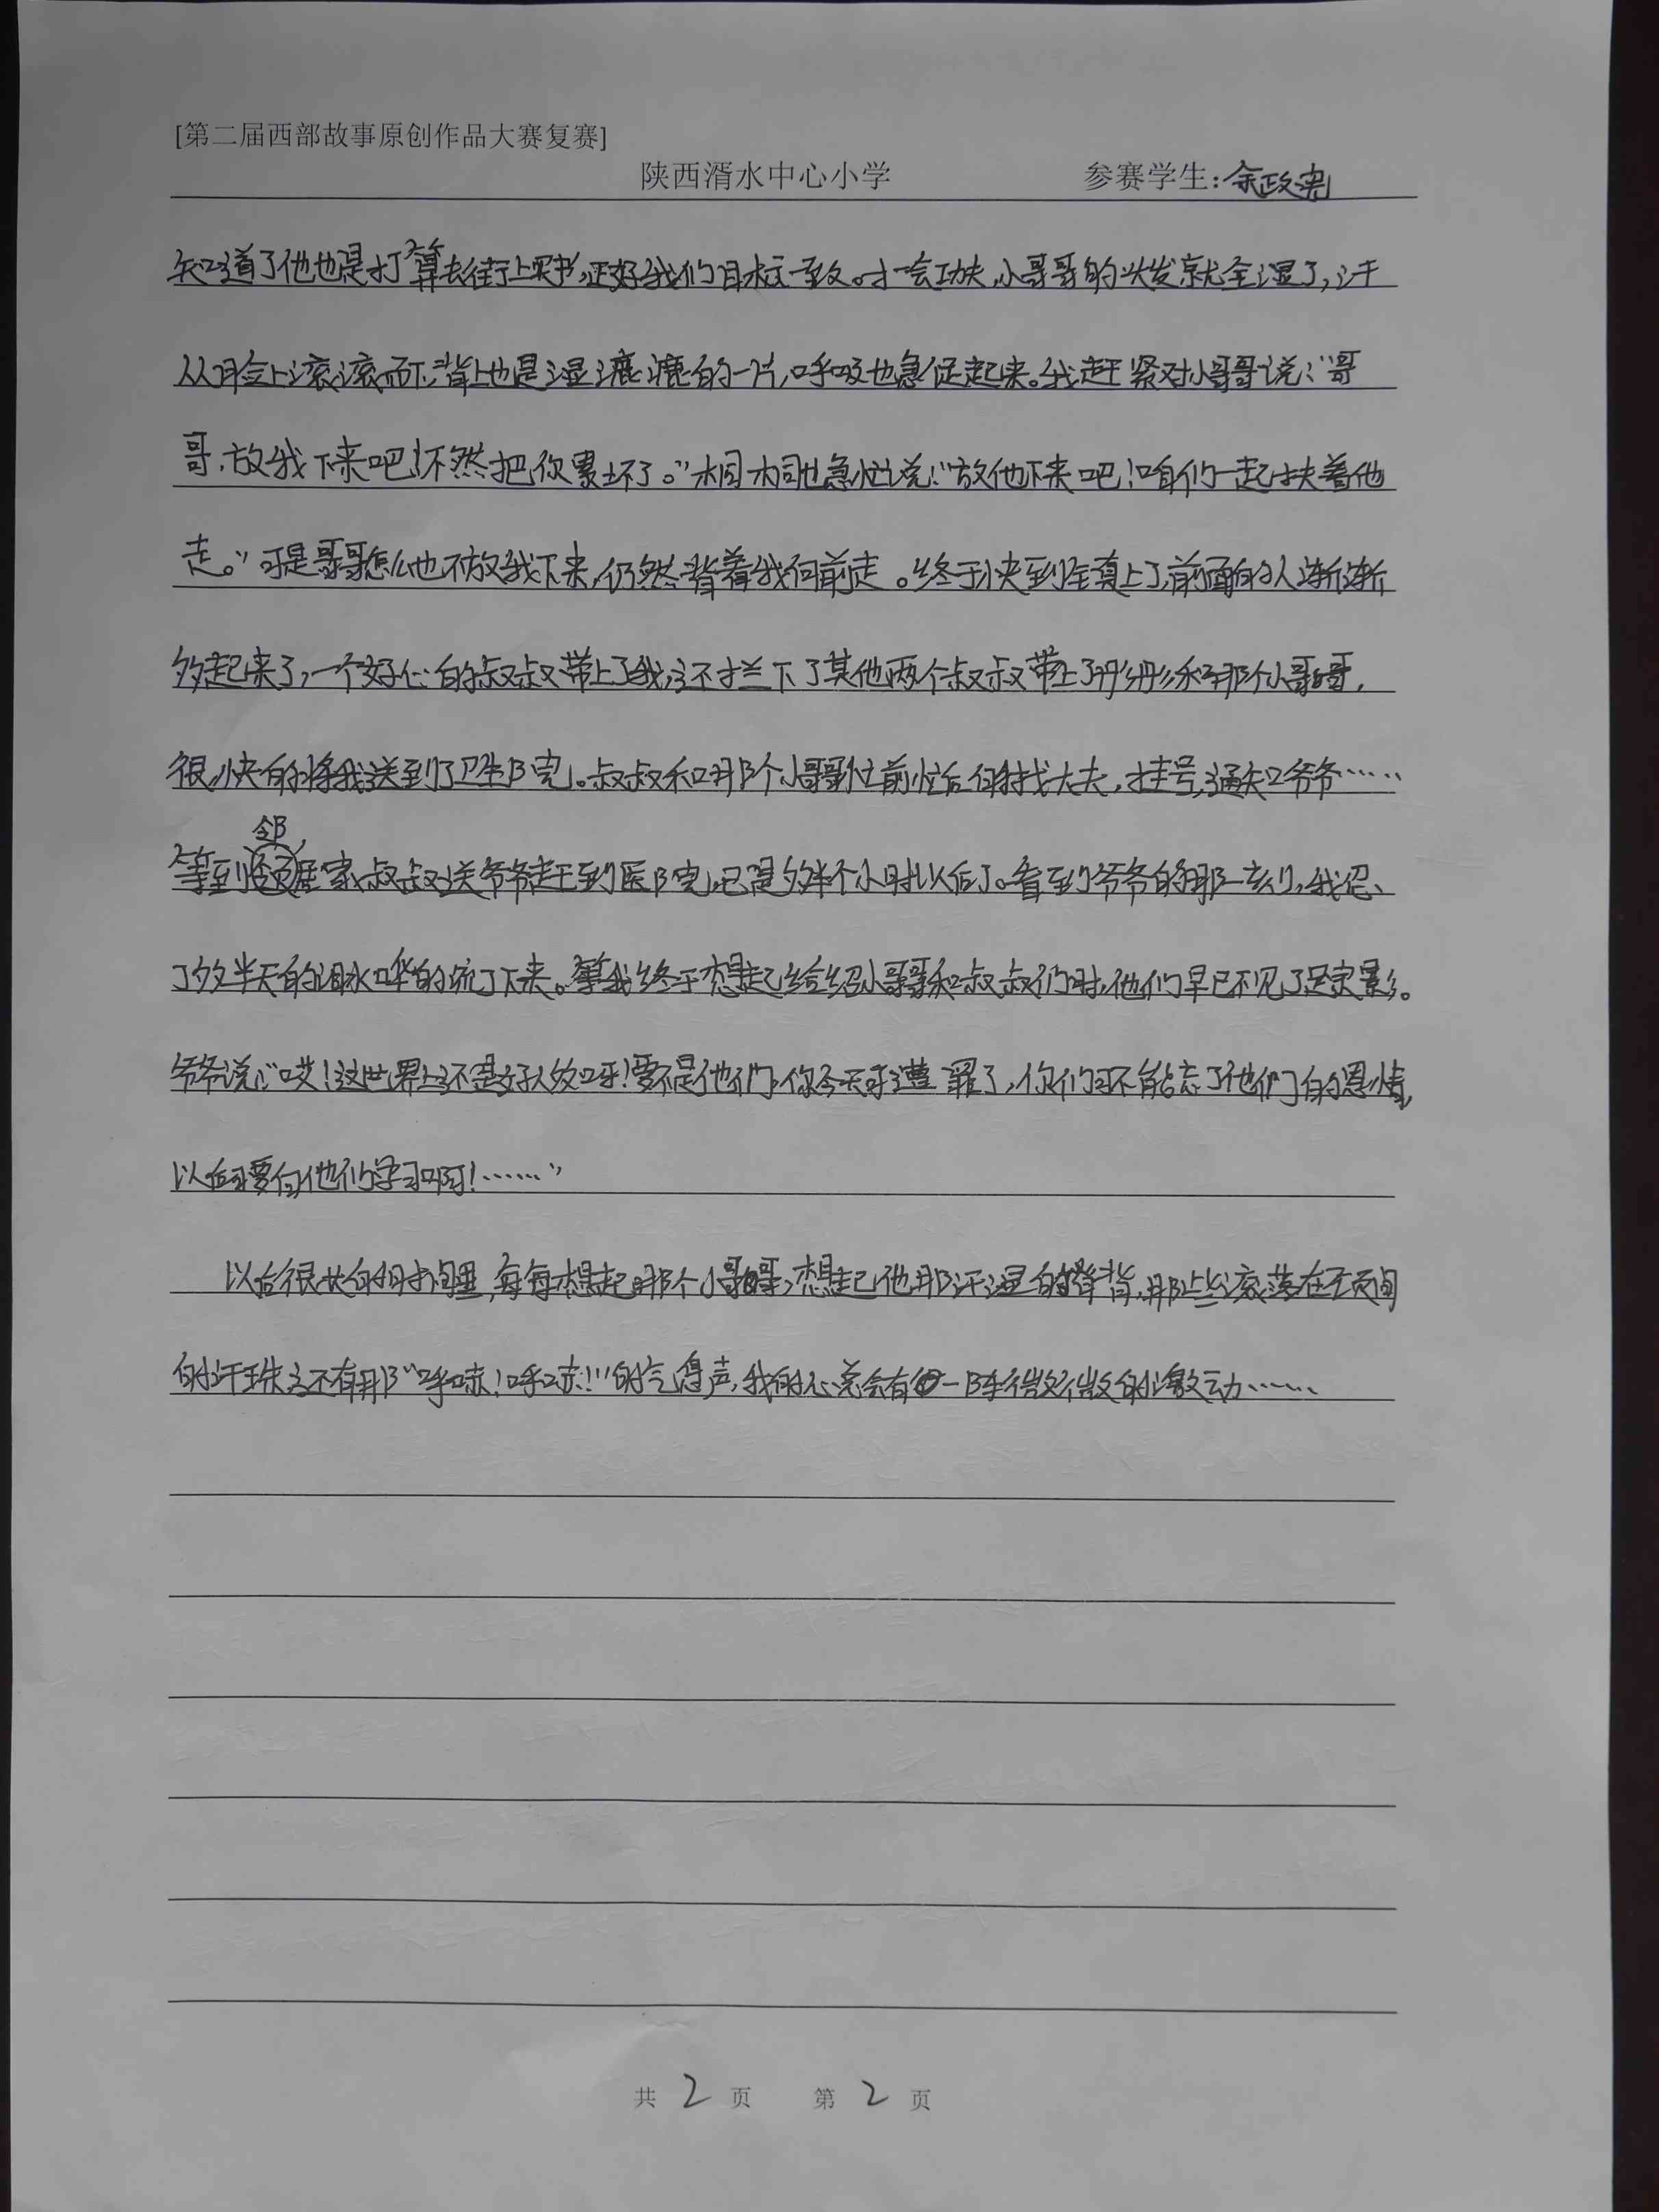 [第二届西部故事原创作品大赛复赛]
陕西湑水中心小学 参赛学生:余政宪
知道了他也是打算去街上买书,正好我们目标一致。才一会功夫,小哥哥的头发就全湿了,汗
从脸上滚滚而下,背上也是湿漉漉的一片,呼吸也急促起来。我赶紧对小哥哥说:“哥
哥,放我下来吧!不然把你累坏了。”桐桐也急忙说:“放他下来吧!咱们一起扶着他
走。”可是哥哥怎么也不放我下来,仍然背着我向前走。终于快到镇上了,前面的人渐渐
多起来了,一个好心的叔叔带上了我,还拦下了其他两个叔叔带上了彤彤和那个小哥哥,
很快的将我送到了卫生院。叔叔和那个小哥哥忙前忙后的找大夫,挂号,通知爷爷……
等到邻居家叔叔送爷爷赶到医院,已是多半个小时以后了。看到爷爷的那一刻,我忍
了多半天的泪水哗的流了下来。等我终于想起给小哥哥和叔叔们时,他们早已不见了踪影。
爷爷说:“哎!这世界上还是好人多呀!要不是他们,你今天可遭罪了,你们可不能忘了他们的恩情,
以后可要向他们学习啊!……”
以后很长的时间里,每每想起那个小哥哥,想起他那汗湿的脊背,那些滚落在下颌间
的汗珠还有那“呼哧!呼哧!”的气喘声,我的心总会有一阵微微的激动……
共 2 页 第 2 页